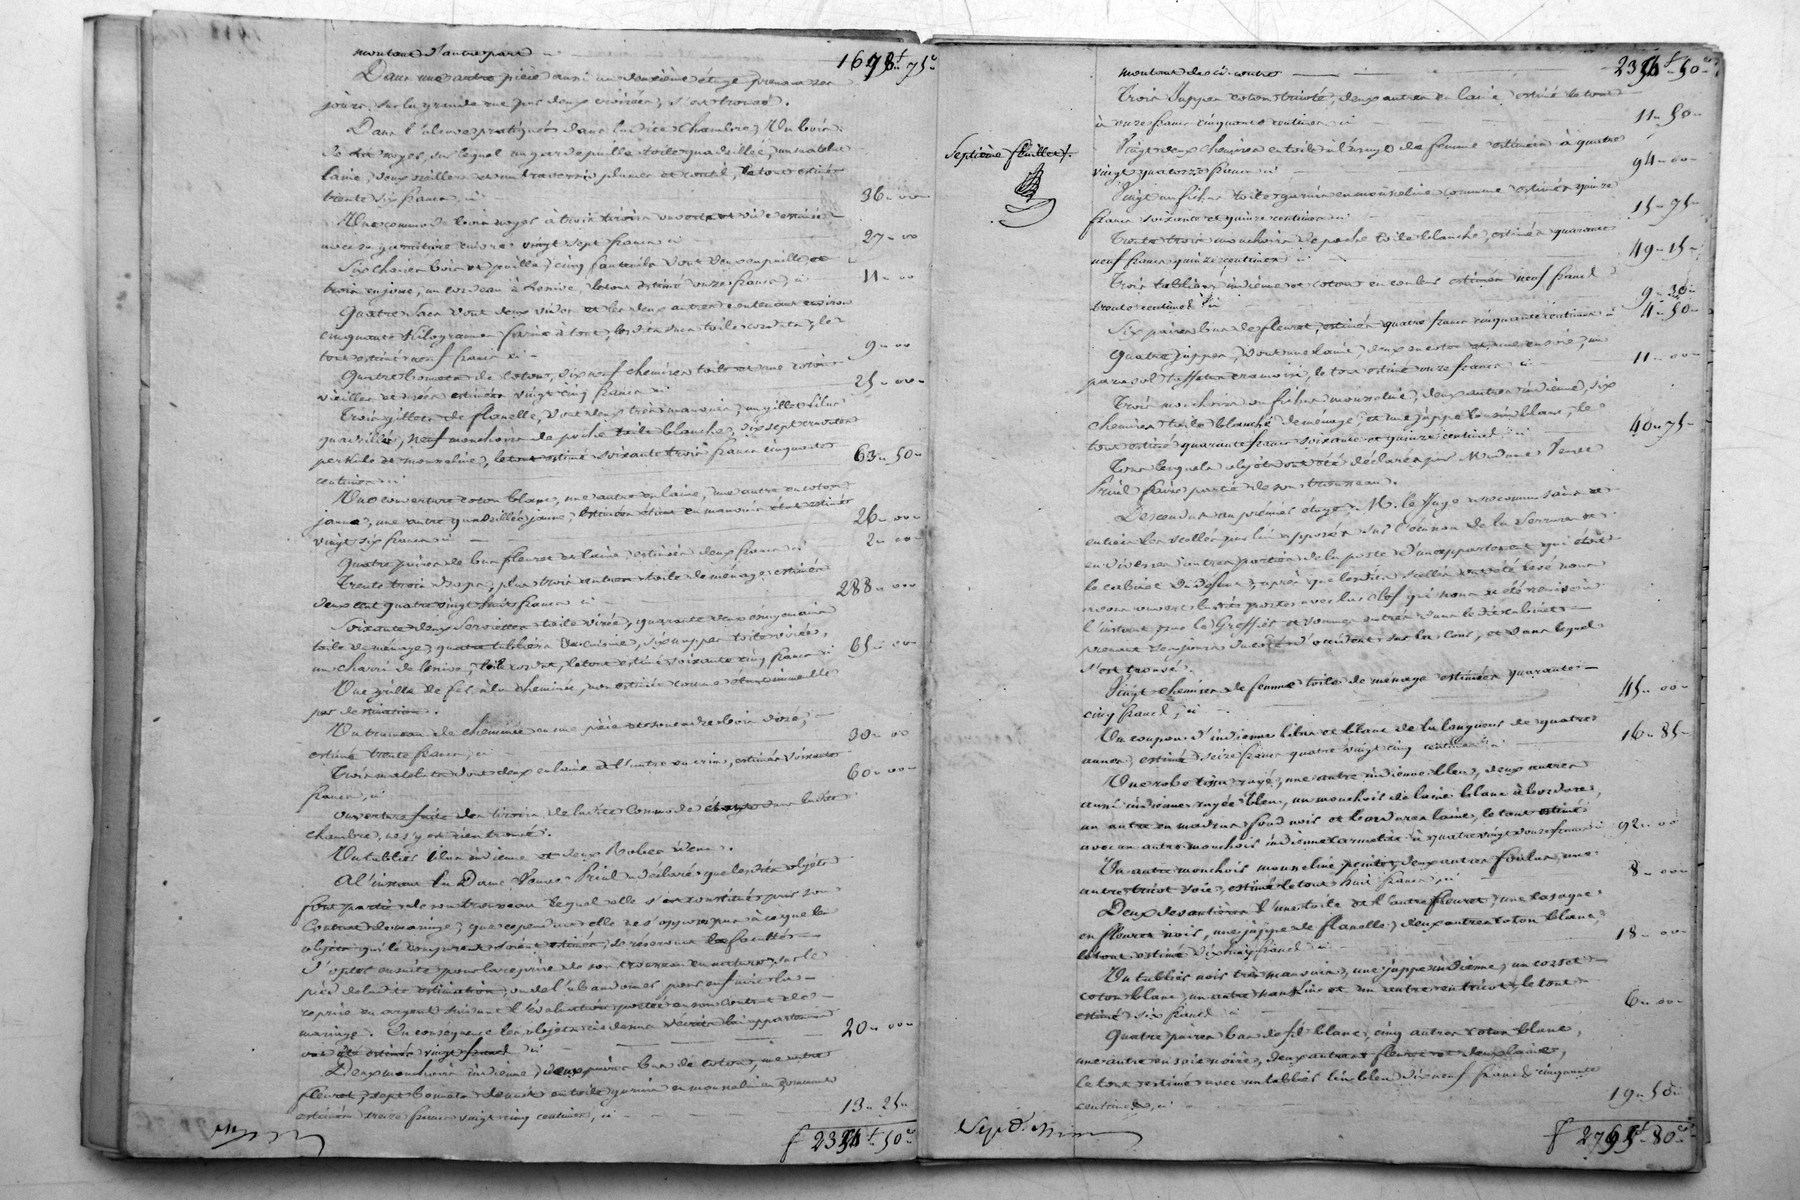 montant d'autre part 1678f 75c
Dans une autre pièce aussi au deuxième étage prenant ses
jours sur la grande rue par deux croisées, s'est trouvé.
Dans l'alcove pratiquée dans la dite chambre, Un bois
de lit noyer, sur lequel un garde paille toile quadrillée, un matelat
laine, deux oreillers et un traversin plumes et coutil, le tout estimé
trente six francs, ci 36 " 00
Une commode bois noyer à trois tiroirs ouverte et vide estimée
avec sa garniture cuivre vingt sept francs ci 27 " 00
Six chaises bois et paille, cinq fauteuils dont deux en paille et
trois en jonc, un cordeau à lessive, le tout estimé onze francs, ci 11 " 00
Quatre sacs dont deux vides et les deux autres contenant environ
cinquante kilogrammes farine à tout, les dits sacs toile cordat, le
tout estimé neuf francs ci 9 " 00
Quatre bonnets de coton, dix neuf chemises toile et une coton
vieilles et usées estimées vingt cinq francs ci 25 " 00
Trois gillets de flanelle, dont deux très mauvais, un gillet lilas
quadrillé, neuf mouchoirs de poche toile blanche, dix sept cravates
perkale et mousseline, le tout estimé soixante trois francs cinquante
centimes ci 63 " 50
Une couverture coton blanc, une autre en laine, une autre en coton
jaune, une autre quadrillée jaune, estimées
vingt six francs ci 26 " 00
Quatre paires de bas fleuret et laine estimées deux francs ci 2 " 00
Trente trois draps, plus trois autres toile de ménage estimés
deux cent quatre vingt huit francs ci 288 " 00
Soixante deux serviettes toile virée, quarante deux essuyemains
toile de ménage, quatre tabliers de cuisine, six nappes toile virée,
un charrié de lessive, toile cordat, le tout estimé soixante cinq francs ci 65 " 00
Une grille de fer à la cheminée, non estimée comme étant immeuble
par destination.
Un trumeau de cheminée en une pièce et son cadre bois doré,
estimé trente francs, ci 30 " 00
Trois matelats dont deux en laine et l'autre en crins, estimés soixante
francs, ci 60 " 00
ouverture faite des tiroirs de la dite commode dans la dite
chambre, ne s'y est rien trouvé.
Un tablier lilas indienne et deux Robes idem.
A l'instant la Dame Veuve Priul a déclaré que les dits objets
font partie de son trousseau lequel elle s'est constitué par son
Contrat de mariage, que cependant elle ne s'oppose pas à ce que les
objets qui le composent soient estimés, se réservant la faculté
d'opter ensuite pour la reprise de son trousseau en nature, sur le
pied de la dite estimation, ou de l'abandonner pour en faire la
reprise en argent suivant l'évaluation portée en son contrat de
mariage. En conséquence les objets ci dessus
ont été estimés vingt francs ci 20 " 00
Deux mouchoirs indienne, deux paires bas de coton, une autre
fleuret, sept bonnets de nuit en toile garnis en mousseline, comme
estimés treize francs vingt cinq centimes, ci 13 " 25
f 2354f 50c
montant de ci contre 2354f 50c
Septième feuillet.
Trois juppes coton tricoté, deux autres en laine, estimé le tout
à onze francs cinquante centimes ci 11 " 50
Vingt deux chemises en toile à l'usage de femme estimées à quatre
vingt quatorze francs ci 94 " 00
Vingt un fichus toile garnis en mousseline comme estimés quinze
francs soixante et quinze centimes ci 15 " 75
Trente trois mouchoirs de poche toile blanche, estimés quarante
neuf francs quinze centimes ci 49 " 15
Trois tabliers indienne et cotons en couleur estimés neuf francs
trente centimes ci 9 " 30
Six paires bas de fleuret, estimées quatre francs cinquante centimes ci 4 " 50
Quatre juppes, dont une laine, deux en coton et une en soie, un
parasol taffetas cramoisi, le tout estimé onze francs ci 11 " 00
Trois mouchoirs ou fichus mousseline, deux autres indienne, six
chemises toile blanche de ménage, et une juppe basin blanc, le
tout estimé quarante francs soixante et quinze centimes ci 40 " 75
Tous lesquels objets ont été déclarés par Madame Veuve
Priul faire partie de son trousseau.
Descendus au premier étage, M. le Juge a reconnu sains et
entiers les scellés par lui apposés sur l'entrée de la serrure et
en diverses autres parties de la porte d'un appartement qui était
le cabinet du défunt, après que les dits scellés ont été levés nous
avons ouvert la dite porte avec la clef qui nous a été remise à
l'instant par le Greffier et sommes entrés dans le dit cabinet
prenant ses jours du côté d'occident sur la cour, et dans lequel
s'est trouvé.
Vingt chemises de femme toile de ménage estimées quarante
cinq francs, ci 45 " 00
Un coupon d'indienne lilas et blanc de la longueur de quatre
aunes, estimé seize francs quatre vingt cinq centimes ci 16 " 85
Une robe tissu rayé, une autre indienne bleu, deux autres
aussi indienne rayée bleu, un mouchoir de laine blanc à bordure,
un autre en madras fond noir et bordures laine, le tout estimé
avec un autre mouchoir indienne à quatre vingt douze francs ci 92 " 00
Un autre mouchoir mousseline peinte, deux autres foulards, une
autre tricot soie, estimé le tout huit francs, ci 8 " 00
Deux devantières l'une toile et l'autre fleuret, une casaque
en fleuret noir, une juppe de flanelle, deux autres coton blanc,
le tout estimé dix huit francs ci 18 " 00
Un tablier noir très mauvais, une juppe indienne, un corset
coton blanc, un autre nankin et un autre en tricot, le tout
estimé six francs ci 6 " 00
Quatre paires bas de fil blanc, cinq autres coton blanc,
une autre en soie noire, deux autres fleuret et deux laine,
le tout estimé avec un tablier lin bleu dix neuf francs cinquante
centimes, ci 19 " 50
f 2795f 80c